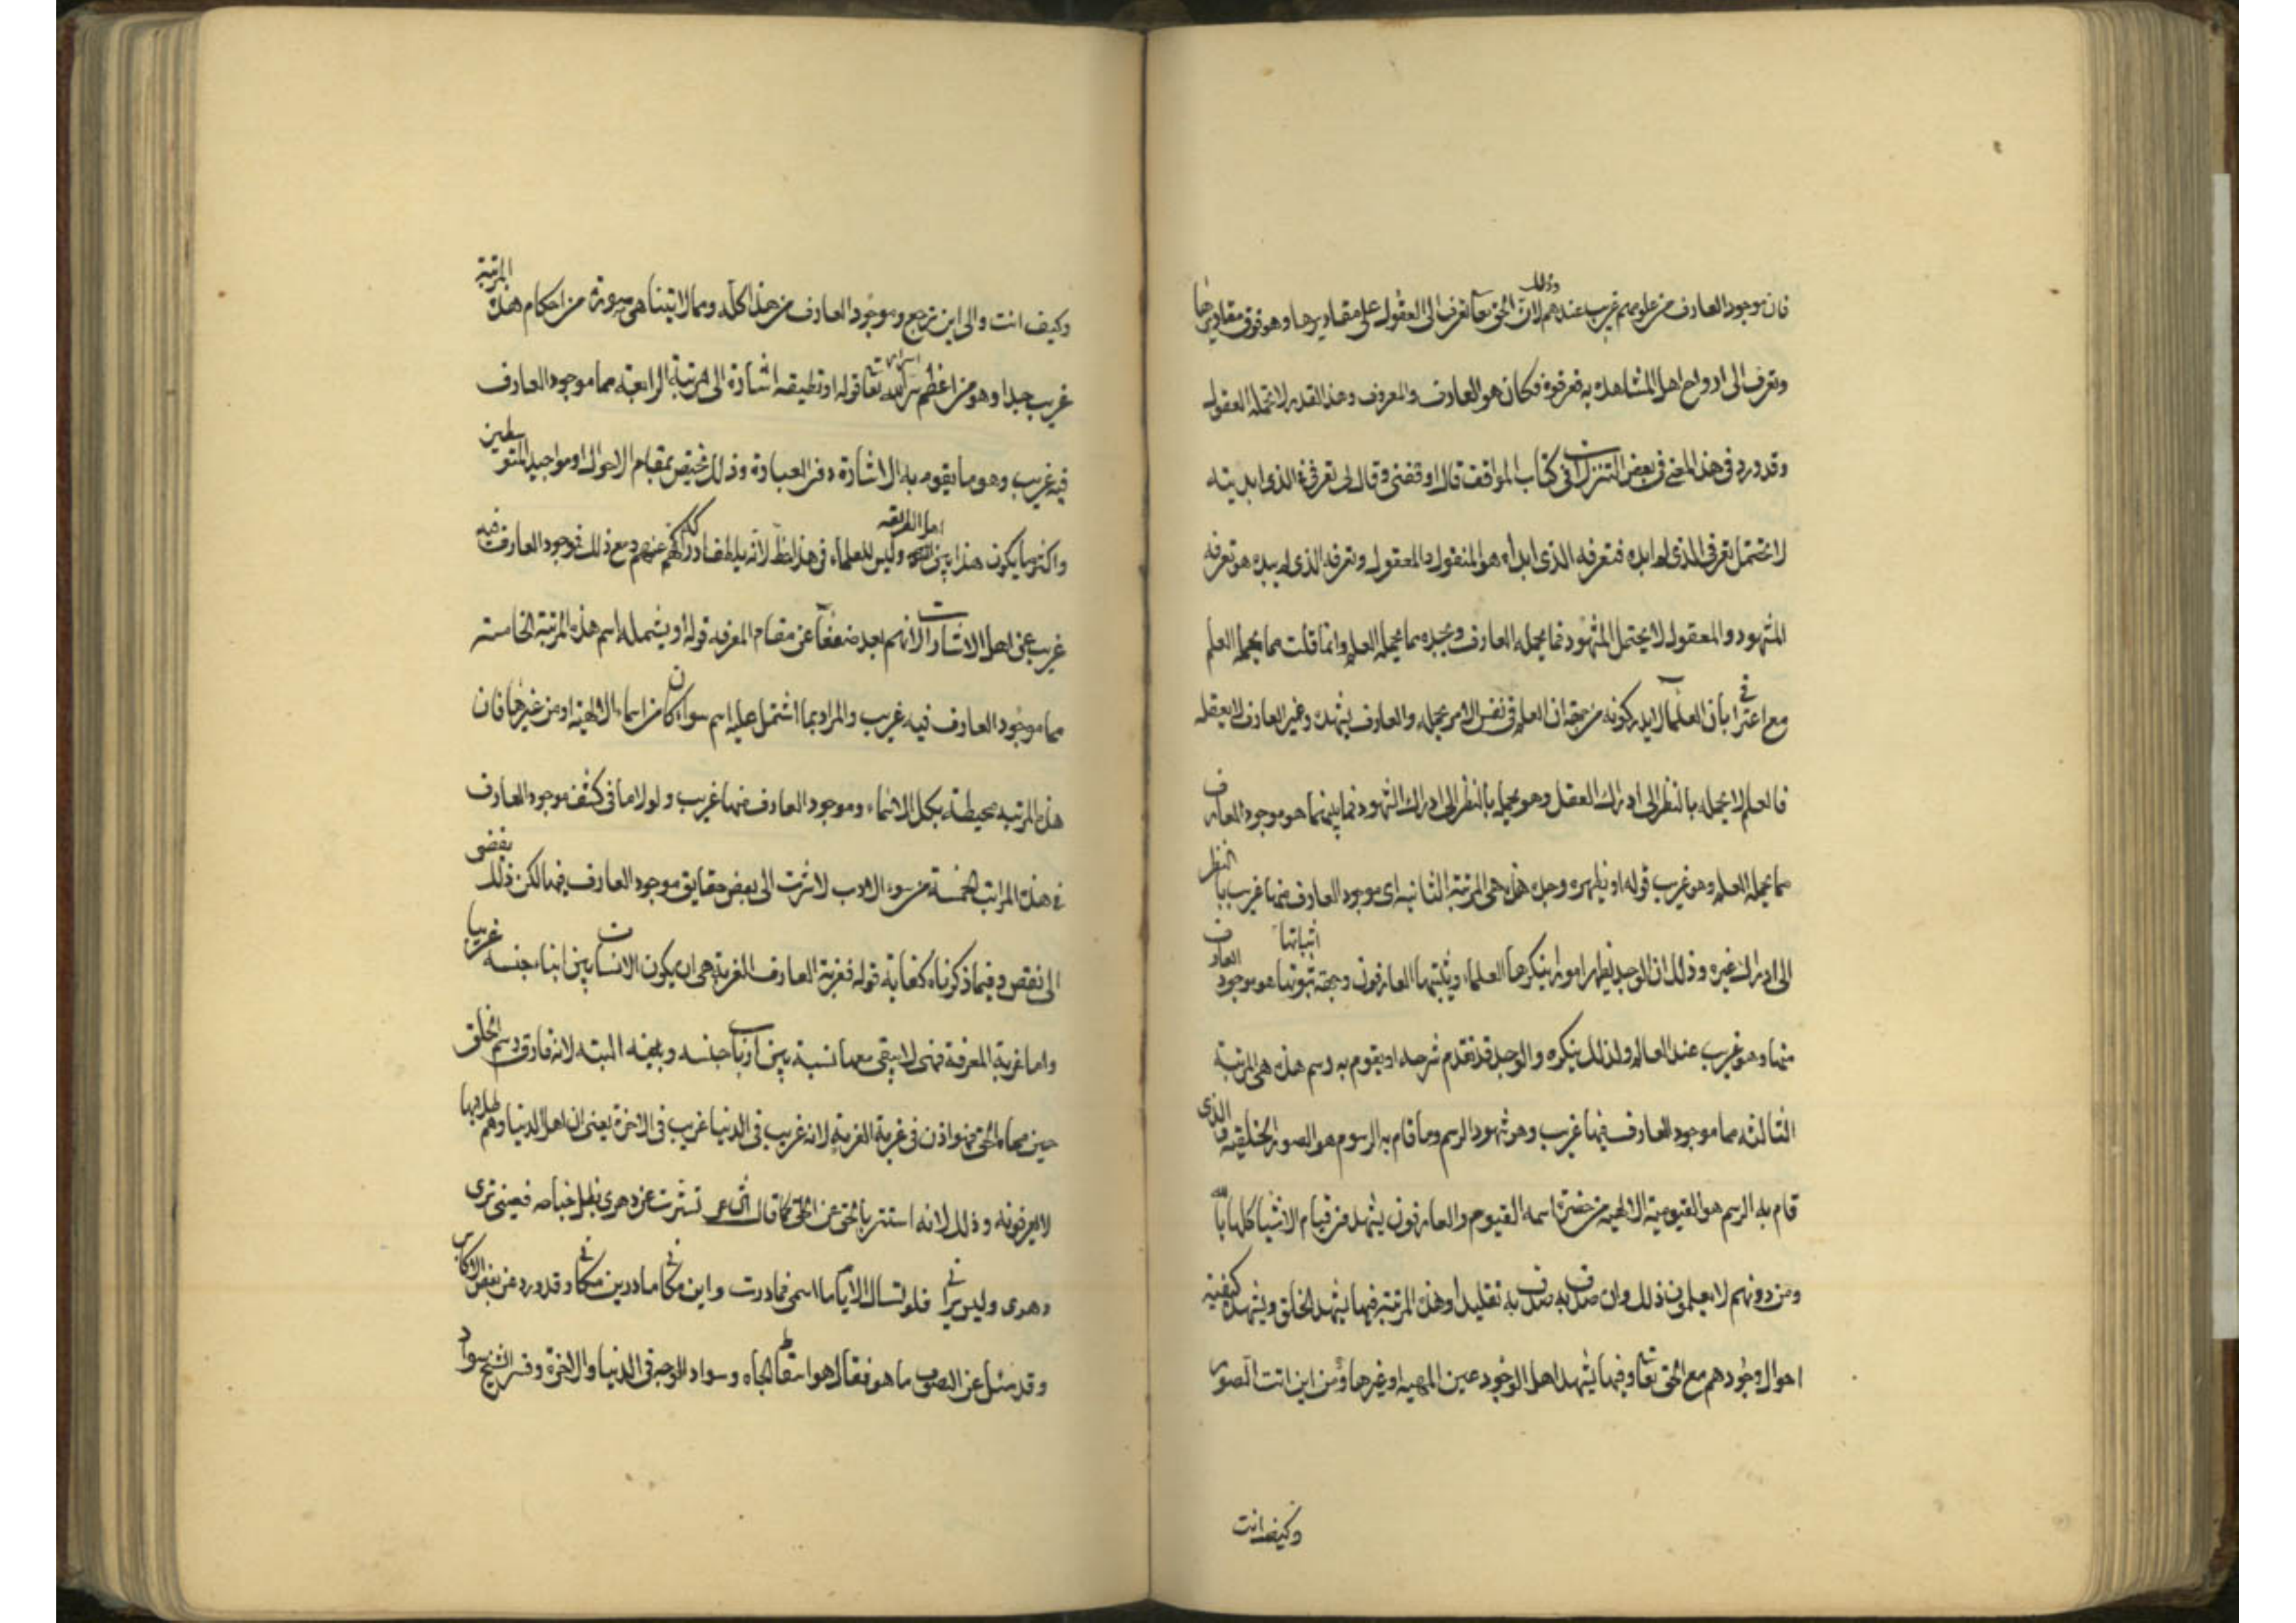 فان موجود العارف من علومهم غريب عندهم وذلك لان الحق تعا تعرف الى العقول على مقاديرها وهو فوق مقاديرها
وتعرف الى ارواح اهل المشاهدة به فعرفوه فكان هو العارف والمعروف وهذا القدر لا تحمله العقول
وقد ورد في هذا المعنى في بعض التنزلات في كتاب المواقف قال اوقفنى وقال لى تعرفى الذى ابديته
لا يحتمل تعرفى الذى لم ابده فتعرفه الذى ابداه هو المنقول والمعقول وتعرفه الذى لم يبده هو تعرفه
المشهود والمعقول لا يحتمل المشهود فما يحمله العارف وجده مما يحمله العلم وانما قلت مما يحمله العلم
مع اعترافى بان العلماء لا يدركونه من جهة ان العلم فى نفس الامر يحمله والعارف يشهده وغير العارف لا يعقله
فالعلم لا يحمله بالنظر الى ادراك العقل وهو يحمله بالنظر الى ادراك الشهود فما بينهما هو موجود العارف
مما يحمله العلم وهو غريب قوله او يظهره وجد هذه هى المرتبة الثانية اى موجود العارف منها غريب بالنظر
الى ادراك غيره وذلك ان الوجد يظهر امورا ينكرها العلماء ويثبتها العارفون وجهة ثبوتها اثباتها هو موجود العارف
منها وهو غريب عند العالم ولذلك ينكره والوجد قد تقدم شرحه او يقوم به رسم هذه هى المرتبة
الثالثة مما موجود العارف فيها غريب وهو شهود الرسم وما قام به الرسوم هو الصورة الخلقية والذى
قام به الرسم هو القيومية الالهية من حضرة اسمه القيوم والعارفون يشهدون قيام الاشيا كلها بالله
ومن دونهم لا يعلمون ذلك وان صدق به صدق به تقليدا وهذه المرتبة فيها يشهد الخلق ويشهد كيفية
احوال وجودهم مع الحق تعا وفيها يشهد اهل الوجود عين المهية او غيرها ومن اين اتت الصور
وكيف انت
وكيف انت والى اين ترجع وموجود العارف من هذا كله ومما لا يتناهى صورته من احكام هذه المرتبة
غريب جدا وهو من اعظم اسرار الله تعا قوله او تطيقه اشارة الى المرتبة الرابعة مما موجود العارف
فيه غريب وهو ما يقوم به الاشارة دون العبارة وذلك مختص بمقام الاحوال ومواجيد المتوسطين
واكثر ما يكون هذا بين اهل الطريقة وليس للعلماء فى هذا حظ لانه يلطف ادراكه عنهم ومع ذلك فوجود العارف فيه
غريب عن اهل الاشارات لانهم بعد ضعفا عن مقام المعرفة قوله او يشمله اسم هذه المرتبة الخامسة
مما موجود العارف فيه غريب والمراد بما اشتمل عليه اسم سواء كان من اسماء الالهية او من غيرها فان
هذه المرتبة محيطة بكل الاشياء وموجود العارف منها غريب ولولا ما فى كشف موجود العارف
فى هذه المراتب الخمسة من سوء الادب لاشرت الى بعض حقايق موجود العارف فيها لكن ذلك يفضى
الى نقص وفيما ذكرناه كفاية قوله فغربة العارف الغربة هى ان يكون الانسان بين ابناء جنسه غريبا
واما غربة المعرفة فهى لا يبقى معها نسبة بين ارباب جنسه وبينه البتة لانه فارق رسم الخلق
حين محاه الحق فهو اذن فى غربة الغربة لانه غريب فى الدنيا غريب فى الاخرة يعنى ان اهل الدنيا وهم
لا يعرفونه وذلك لانه استتر بالحق عن الخلق كما قال الشاعر تسترت عن دهرى بظل جناحه فعينى ترى
دهرى وليس يرانى فلو تسال الايام ما اسمى فما درت واين مكانى ما درين مكانى وقد ورد عن بعض الاكابر
وقد سئل عن التصوف ما هو فقال هو اسقاط الجاه وسواد الوجه فى الدنيا والاخرة وفسر الشيخ سواد